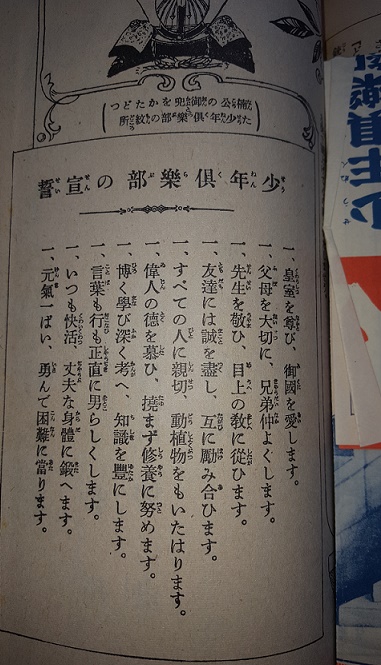 (楠公の御兜をかたどつ
た少年俱樂部の紋所)
少年俱樂部の宣誓
一、皇室を尊び、御國を愛します。
一、父母を大切に、兄弟仲よくします。
一、先生を敬ひ、目上の敎に從ひます。
一、友達には誠を盡し、互に勵み合ひます。
一、すべての人に親切、動植物をもいたはります。
一、偉人の德を慕ひ、撓まず修養に努めます。
一、博く學び深く考へ、知識を豐にします。
一、言葉も行も正直に男らしくします。
一、いつも快活、丈夫な身體に鍛へます。
一、元氣一ぱい、勇んで困難に當ります。